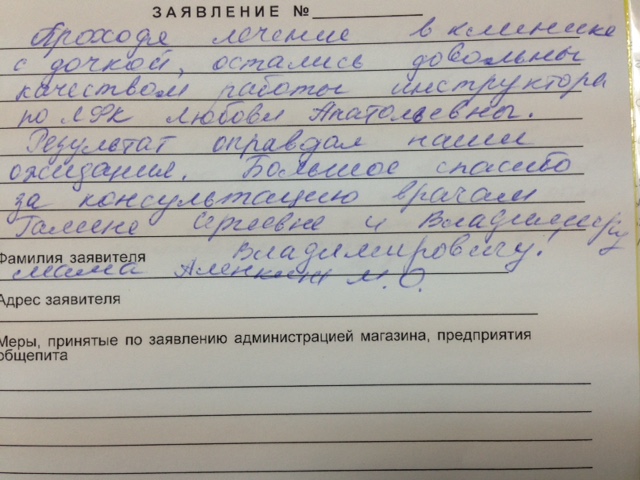 ЗАЯВЛЕНИЕ №
Проходя лечение в клинике
с дочкой, остались довольны
качеством работы инструктора
по ЛФК Любови Анатольевны.
Результат оправдал наши
ожидания. Большое спасибо
за консультацию врачам
Галине Сергеевне и Владимиру
Владимировичу!
Фамилия заявителя
мама М.О.
Адрес заявителя
Меры, принятые по заявлению администрацией магазина, предприятия
общепита